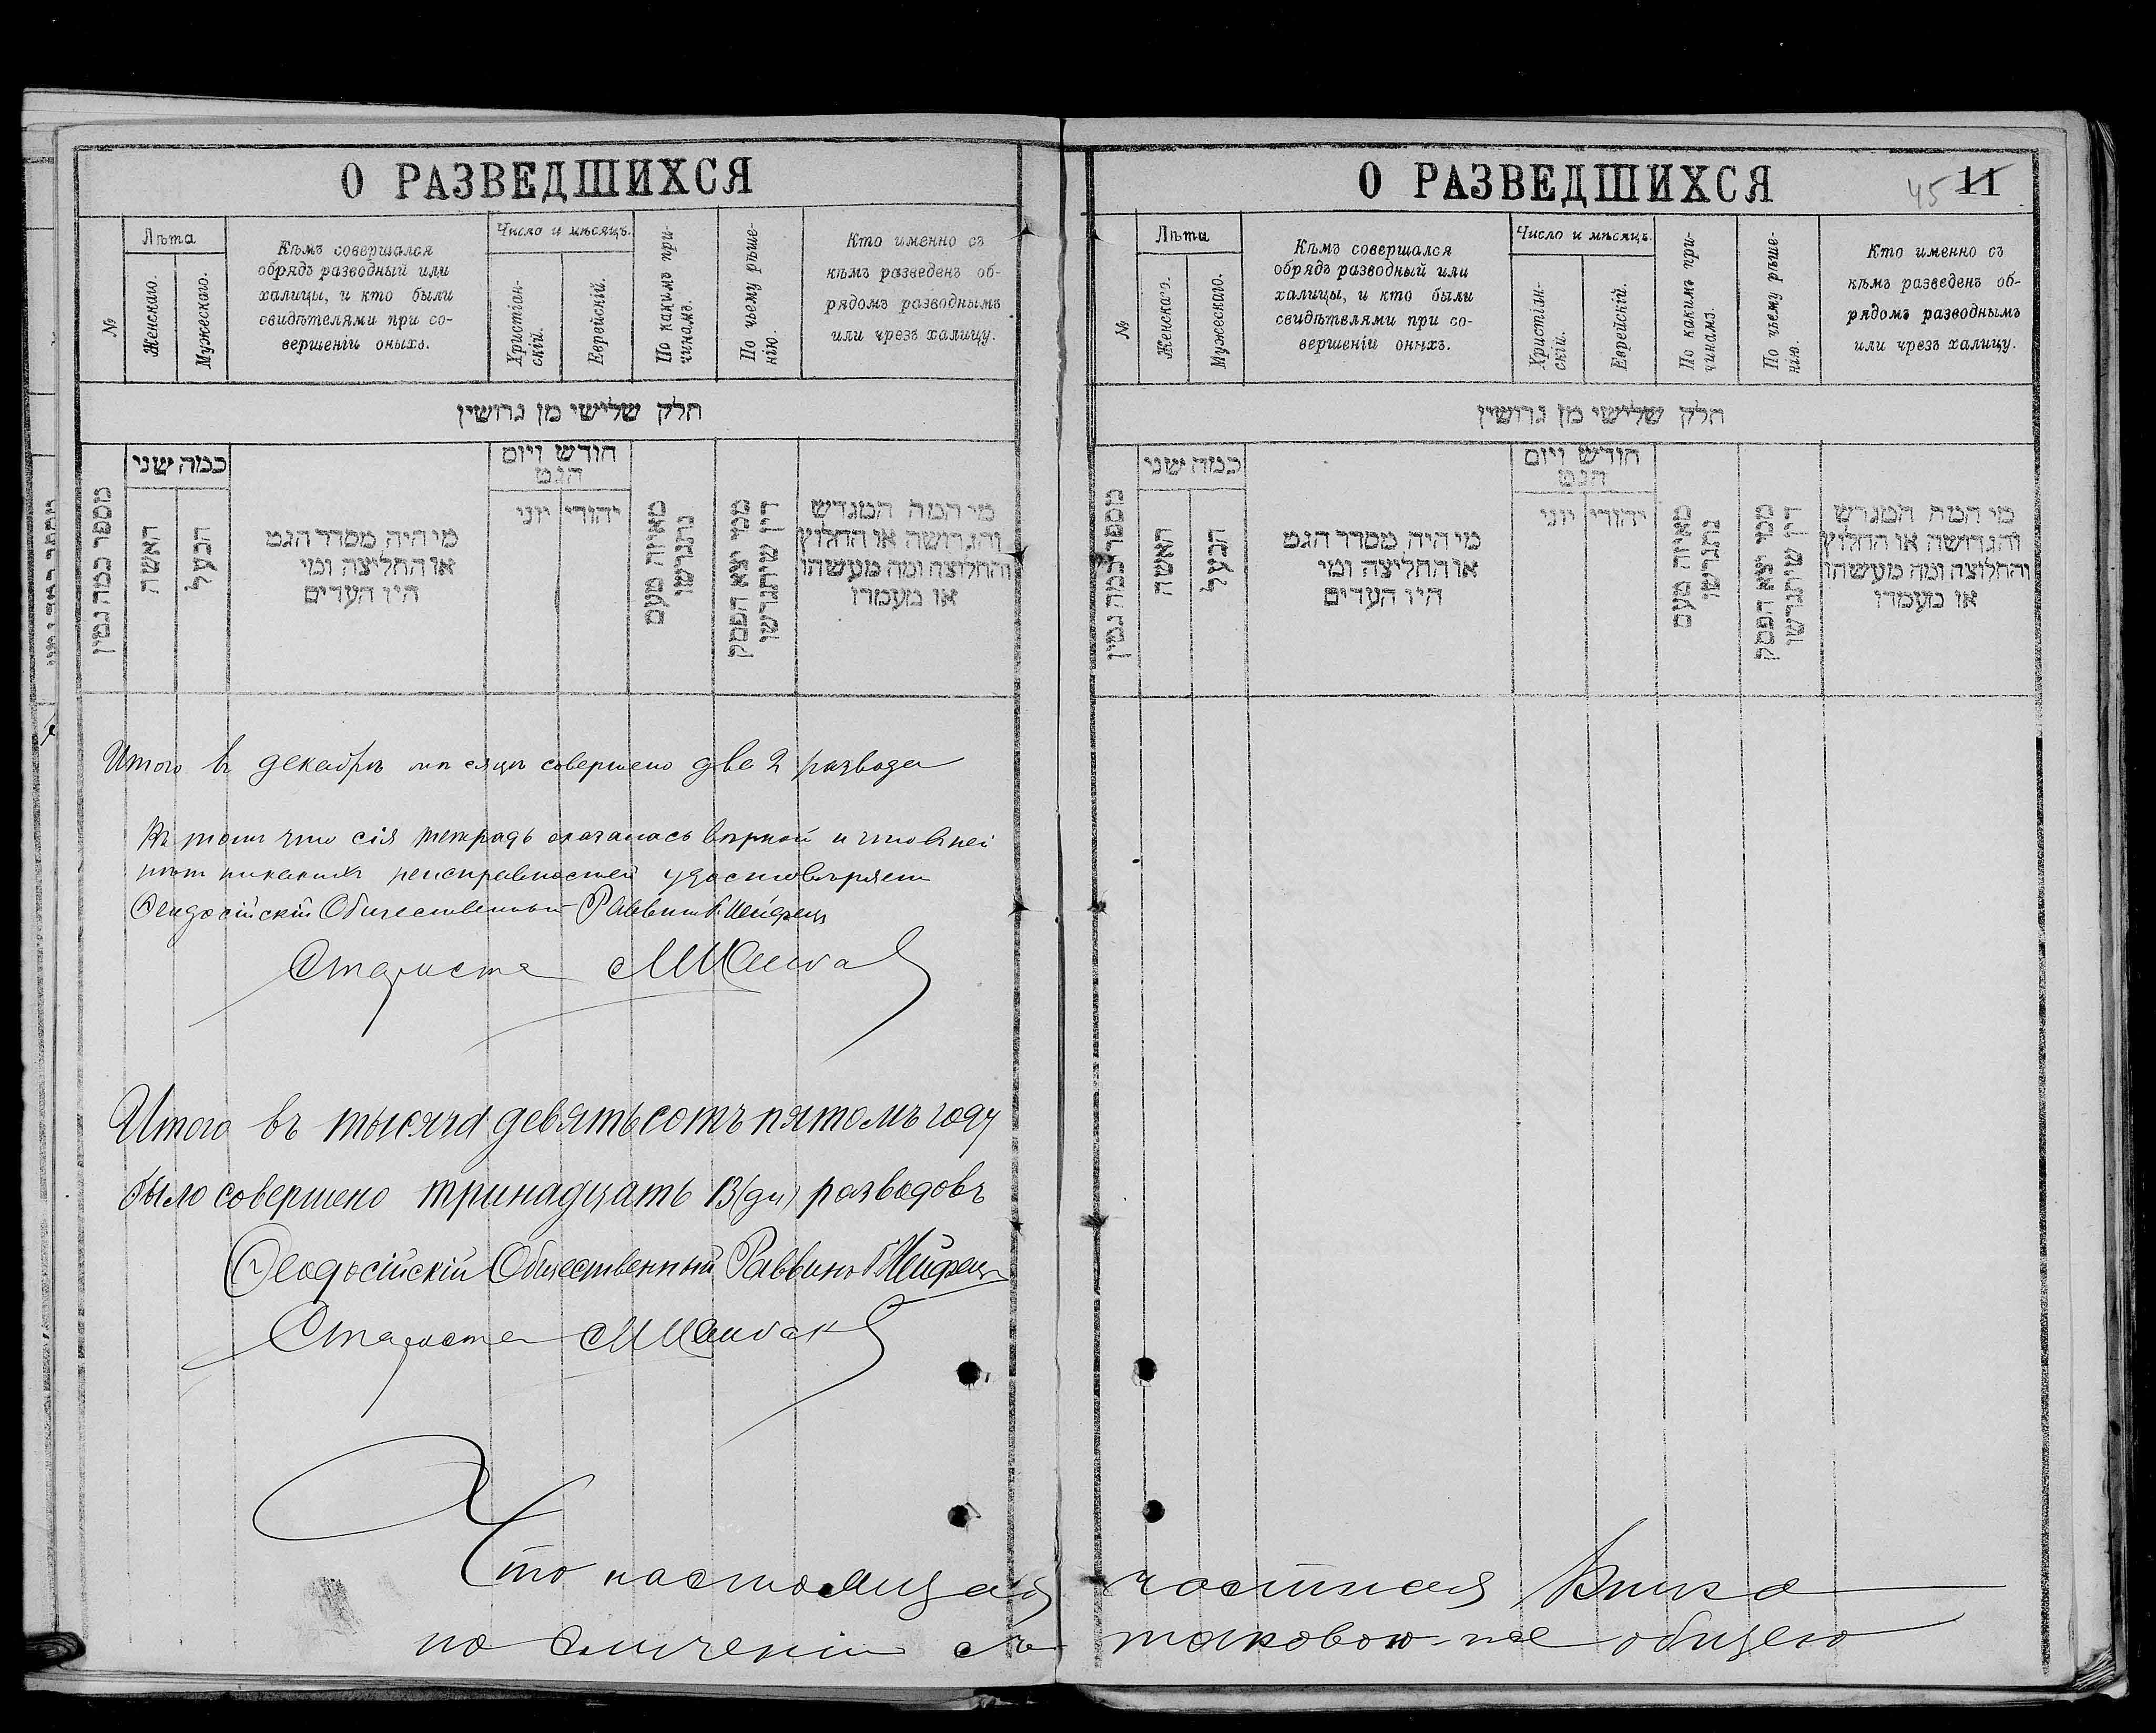 О РАЗВЕДШИХСЯ
№
Лѣта
Женскаго.
Мужескаго.
Кѣмъ совершался
обрядъ разводный или
халицы, и кто были
свидѣтелями при со-
вершеніи оныхъ.
Число и мѣсяцъ.
Христіан-
скій.
Еврейскій.
По какимъ при-
чинамъ.
По чьему рѣше-
нію.
Кто именно съ
кѣмъ разведенъ об-
рядомъ разводнымъ
или чрезъ халицу.
חלק שלישי מן גרושין
מספר כמה גטין
כמה שני
האשה
הבעל
מי היה מסדר הגט
או החליצה ומי
היו העדים
חודש ויום
הגט
יהודי
יוני
מאיזה טעם
נתגרשו
ממי יצא הפסק
דין שיתגרשו
מי המה המגרש
והגרושה או החלוץ
והחלוצה ומה מעשהו
או מעמדו
Итого въ декабрѣ мѣсяцѣ совершено два 2 развода
Въ томъ что сія тетрадь оказалась вѣрной и что въ ней
нѣтъ никакихъ неисправностей удостовѣряетъ
Ѳеодосійскій Общественный Раввинъ
Староста
Итого въ тысяча девятьсотъ пятомъ году
было совершено тринадцать 13 (ть) разводовъ
Ѳеодосійскій Общественный Раввинъ
Староста
Что настоящая частная книга
по сличеніи съ таковою-же общею
О РАЗВЕДШИХСЯ
45 11
№
Лѣта
Женскаго.
Мужескаго.
Кѣмъ совершался
обрядъ разводный или
халицы, и кто были
свидѣтелями при со-
вершеніи оныхъ.
Число и мѣсяцъ.
Христіан-
скій.
Еврейскій.
По какимъ при-
чинамъ.
По чьему рѣше-
нію.
Кто именно съ
кѣмъ разведенъ об-
рядомъ разводнымъ
или чрезъ халицу.
חלק שלישי מן גרושין
מספר כמה גטין
כמה שני
האשה
הבעל
מי היה מסדר הגט
או החליצה ומי
היו העדים
חודש ויום
הגט
יהודי
יוני
מאיזה טעם
נתגרשו
ממי יצא הפסק
דין שיתגרשו
מי המה המגרש
והגרושה או החלוץ
והחלוצה ומה מעשהו
או מעמדו